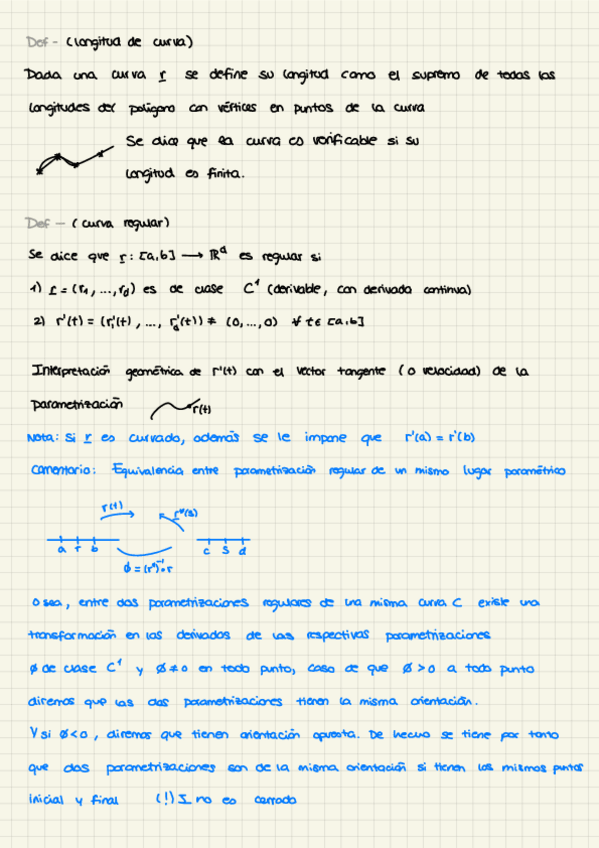 Def - (longitud de curva)
Dada una curva r se define su longitud como el supremo de todas las
longitudes del polígono con vértices en puntos de la curva
Se dice que la curva es verificable si su
longitud es finita.
Def - (curva regular)
Se dice que r: [a,b] → ℝᵈ es regular si
1) r = (r₁, ..., r_d) es de clase C¹ (derivable, con derivada continua)
2) r'(t) = (r₁'(t), ..., r_d'(t)) ≠ (0,...,0) ∀ t ∈ [a,b]
Interpretación geométrica de r'(t) con el vector tangente (o velocidad) de la
parametrización
r(t)
Nota: Si r es curvado, además se le impone que r'(a) = r'(b)
Comentario: Equivalencia entre parametrización regular de un mismo lugar paramétrico
r(t) r*(s)
a t b c s d
ϕ = (r*)⁻¹∘r
O sea, entre dos parametrizaciones regulares de una misma curva C existe una
transformación en las derivadas de las respectivas parametrizaciones
ϕ de clase C¹ y ϕ ≠ 0 en todo punto, caso de que ϕ > 0 a todo punto
diremos que las dos parametrizaciones tienen la misma orientación.
Y si ϕ < 0, diremos que tienen orientación opuesta. De hecho se tiene por tanto
que dos parametrizaciones son de la misma orientación si tienen los mismos puntos
inicial y final (!) I no es cerrado